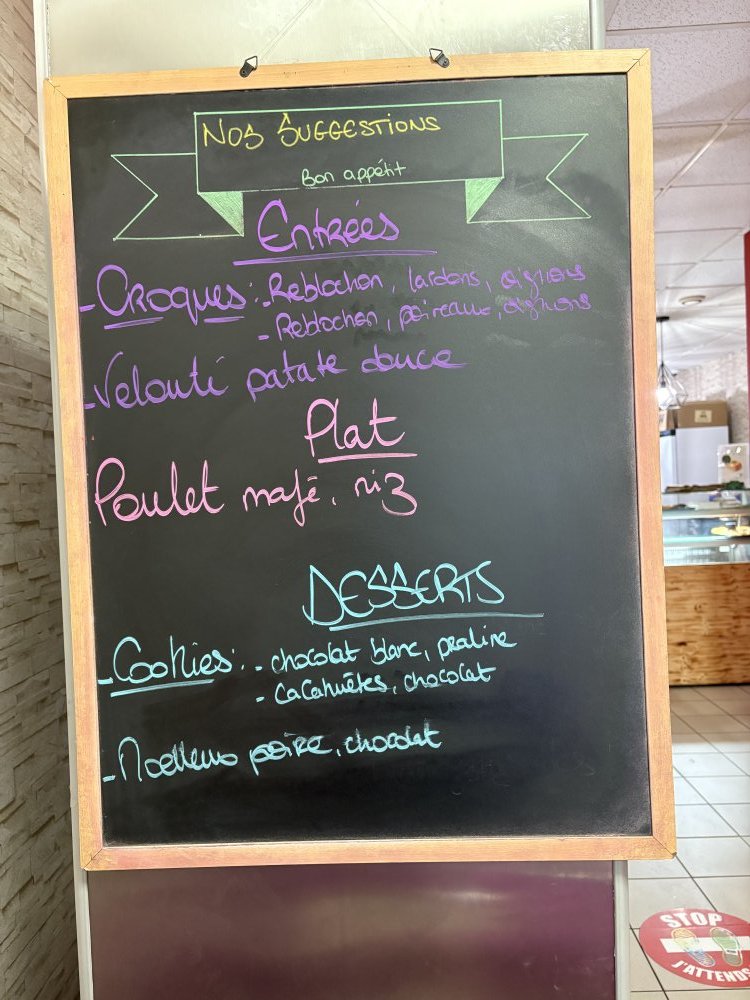 NOS SUGGESTIONS
Bon appétit
Entrées
- CROQUES : - Reblochon, lardons, oignons
- Reblochon, poireaux, oignons
- Velouté patate douce
Plat
Poulet mafé, riz
DESSERTS
- Cookies : - chocolat blanc, praline
- Cacahuètes, chocolat
- Moelleux poire, chocolat
STOP
J'ATTENDS